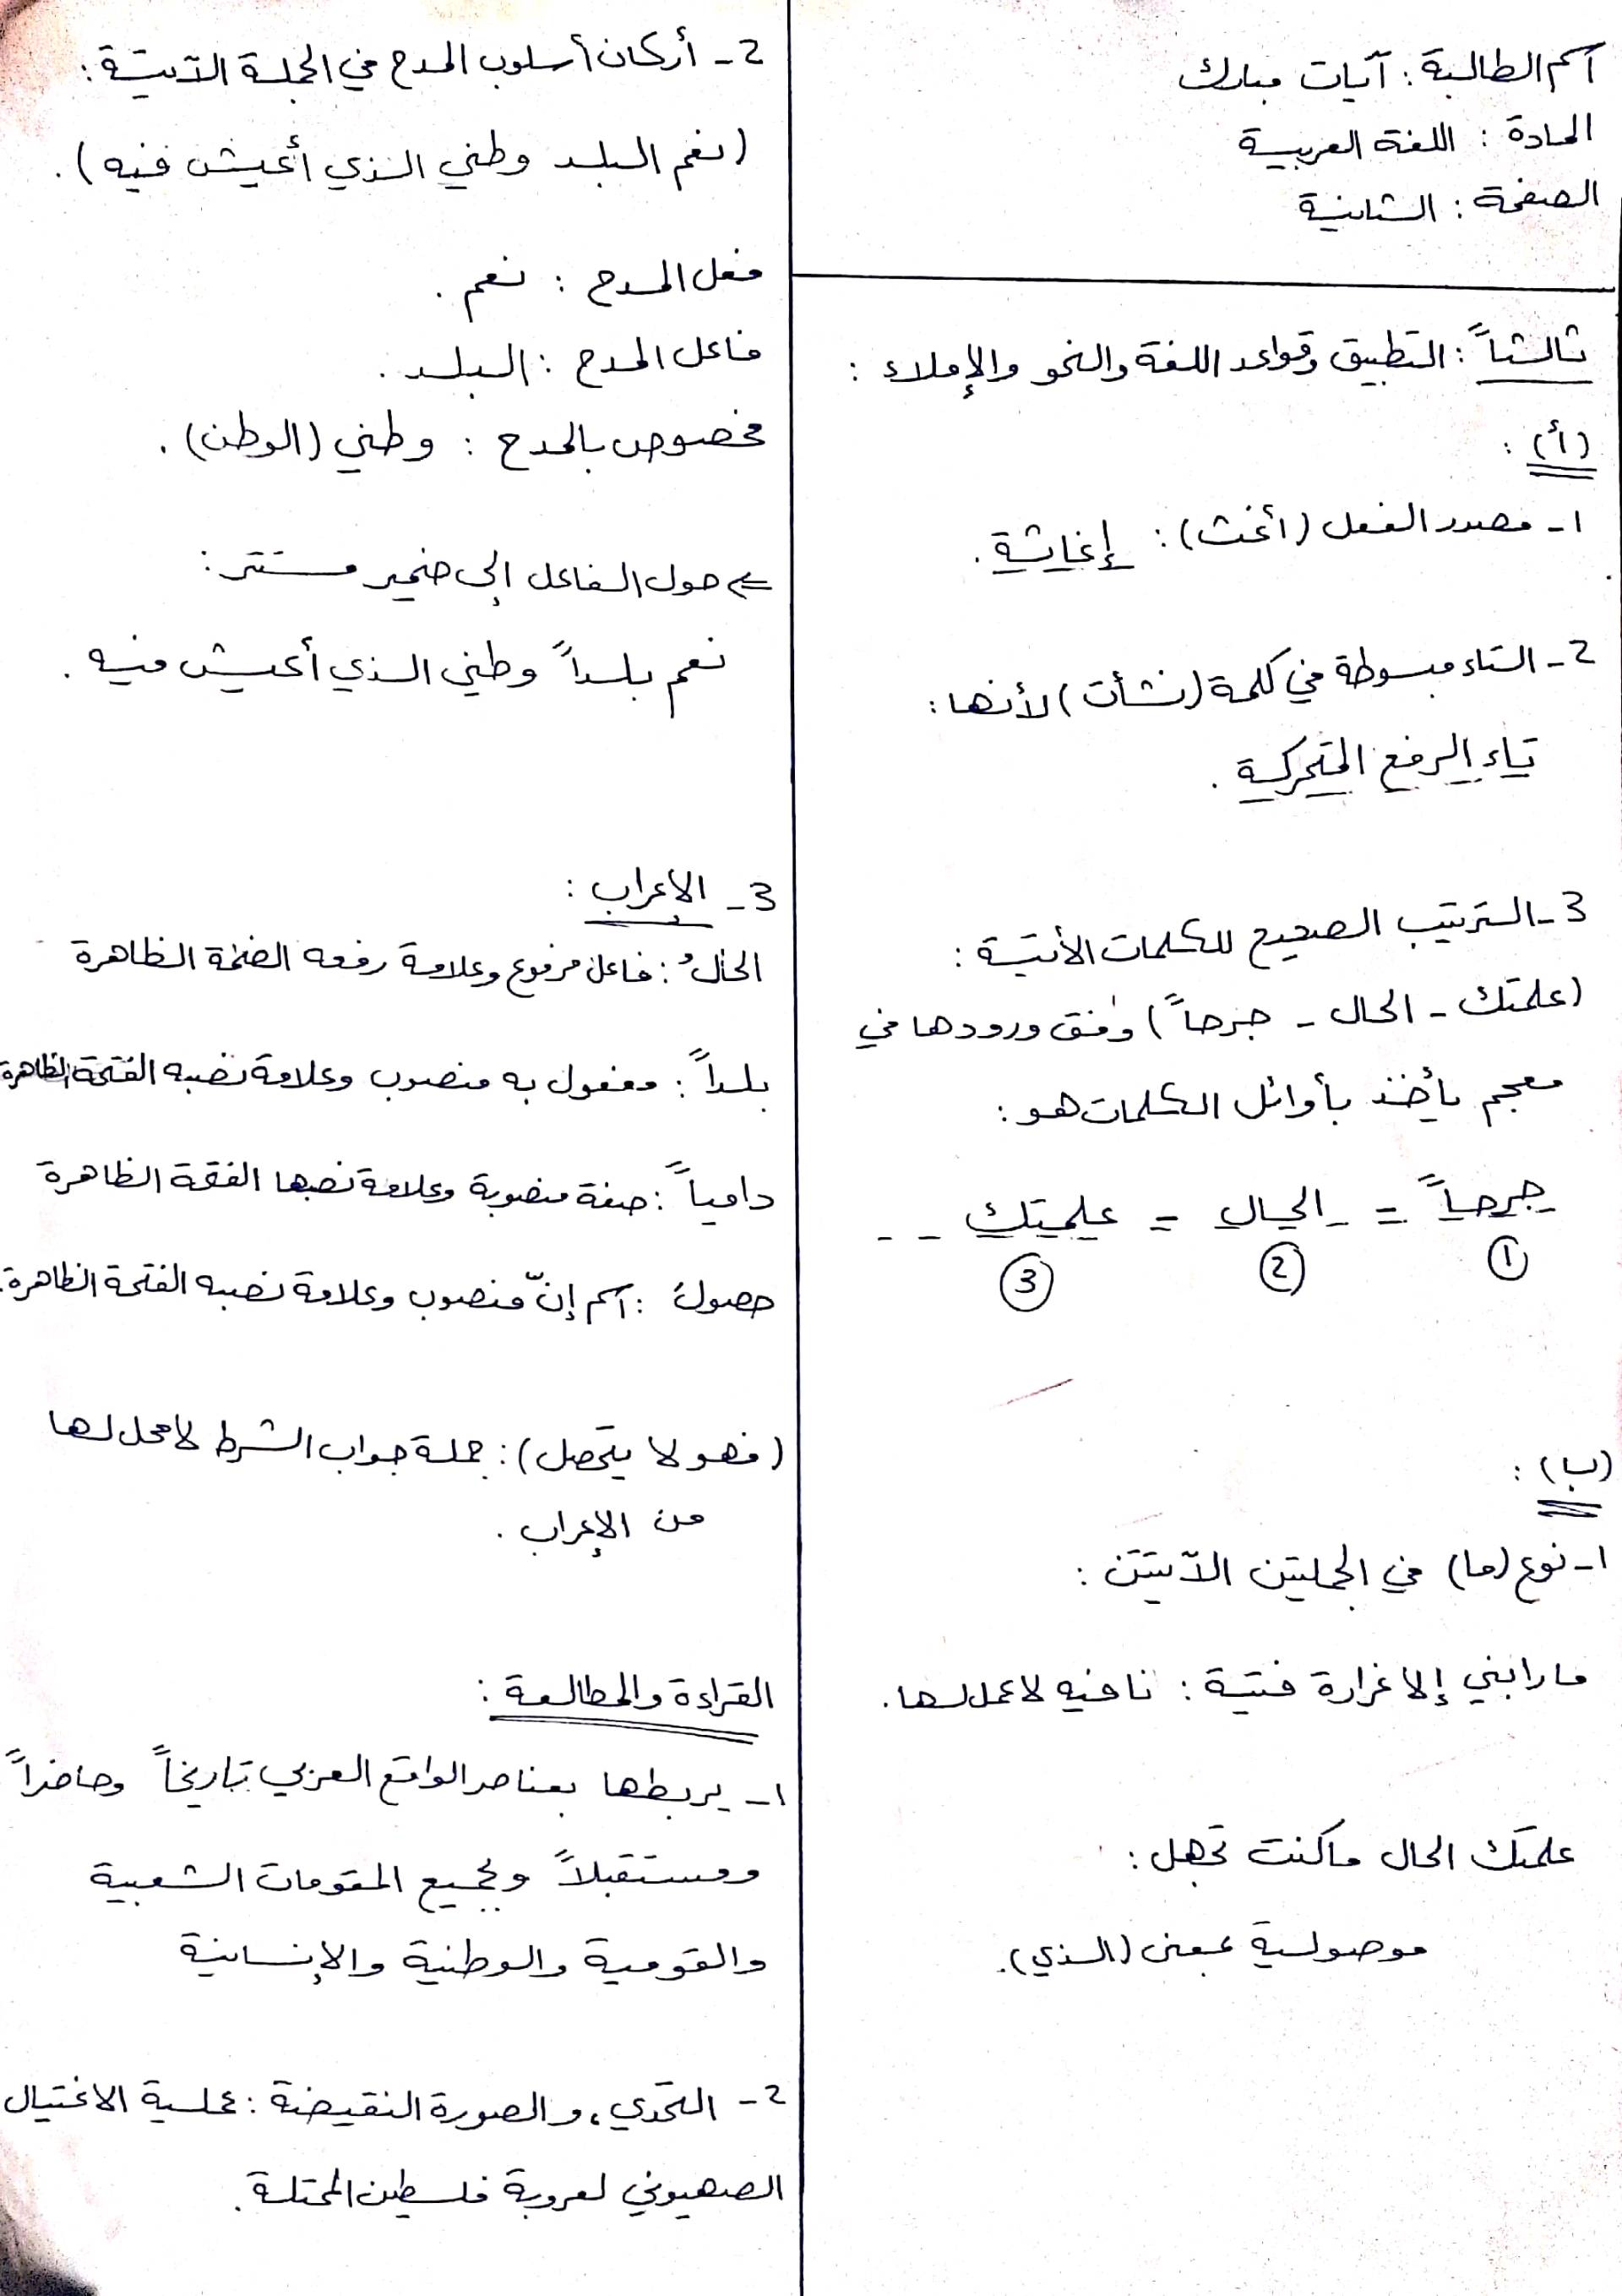 اسم الطالبة : آيات مبارك
المادة : اللغة العربية
الصفحة : الثانية
ثالثاً : التطبيق وقواعد اللغة والنحو والإملاء :
(أ) :
١- مصدر الفعل (أغث) : إغاثة .
2- التاء مبسوطة في كلمة (نشأت) لأنها :
تاء الرفع المتحركة .
3- الترتيب الصحيح للكلمات الأتية :
(علمتك - الحال - جرحاً) وفق ورودها في
معجم يأخذ بأوائل الكلمات هو :
جرحاً = الحال = علمتك - -
① ② ③
(ب) :
١- نوع (ما) في الجملتين الآتيتين :
ما رابني إلا غرارة فتية : نافيه لا عمل لها .
علمتك الحال ما كنت تجهل :
موصولية بمعنى (الذي) .
2- أركان أسلوب المدح في الجملة الآتية :
(نعم البلد وطني الذي أعيش فيه) .
فعل المدح : نعم .
فاعل المدح : البلد .
مخصوص بالمدح : وطني (الوطن) .
حول الفاعل إلى ضمير مستتر :
نعم بلداً وطني الذي أعيش فيه .
3- الاعراب :
الحالُ : فاعل مرفوع وعلامة رفعه الضمة الظاهرة
بلداً : مفعول به منصوب وعلامة نصبه الفتحة الظاهرة
دامياً : صفة منصوبة وعلامة نصبها الفتحة الظاهرة
حصولَ : اسم إنّ منصوب وعلامة نصبه الفتحة الظاهرة .
(فهو لا يتحصل) : جملة جواب الشرط لا محل لها
من الإعراب .
القراءة والمطالعة :
١- يربطها بعناصر الواقع العربي تاريخاً وحاضراً
ومستقبلاً وبجميع المقومات الشعبية
والقومية والوطنية والإنسانية
2- التحدي ، والصورة النقيضة : عملية الاغتيال
الصهيوني لعروبة فلسطين المحتلة .